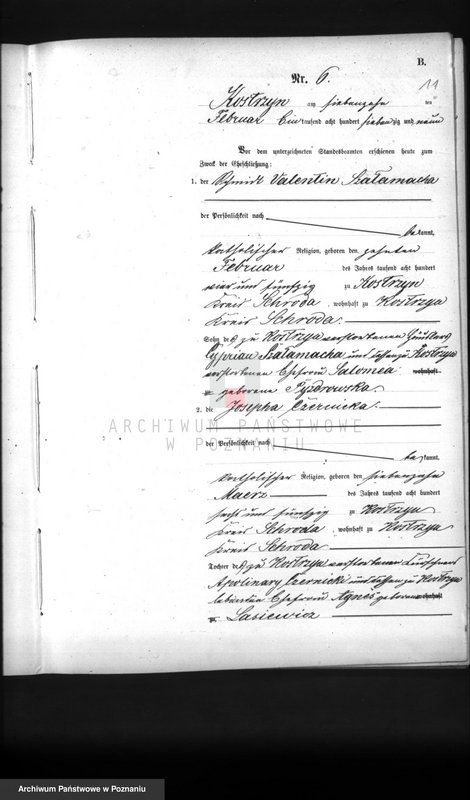 B.
11
Nr. 6.
Kostrzyn am siebenzehn ten
Februar Ein tausend acht hundert siebenzig und neun
Vor dem unterzeichneten Standesbeamten erschienen heute zum
Zweck der Eheschließung:
1. der Schmidt Valentin Szałamacha
der Persönlichkeit nach
be kannt,
katholischer Religion, geboren den zehnten
Februar des Jahres tausend acht hundert
vier und fünfzig zu Kostrzyn
Kreis Schroda, wohnhaft zu Kostrzyn
Kreis Schroda.
Sohn des zu Kostrzyn verstorbenen
Cyprian Szałamacha und dessen zu Kostrzyn
verstorbenen Ehefrau Salomea wohnhaft
zu geborene Pyzdrowska.
2. die Josepha Czernicka.
ARCHIWUM PAŃSTWOWE
W POZNANIU
der Persönlichkeit nach
be kannt,
katholischer Religion, geboren den siebenzehn
Maerz des Jahres tausend acht hundert
sechs und fünfzig zu Kostrzyn
Kreis Schroda, wohnhaft zu Kostrzyn
Kreis Schroda
Tochter des zu Kostrzyn verstorbenen
Apolinary Czernicki und dessen zu Kostrzyn
lebenden Ehefrau Agnes geborene wohnhaft
zu Lasiewicz
Archiwum Państwowe w Poznaniu